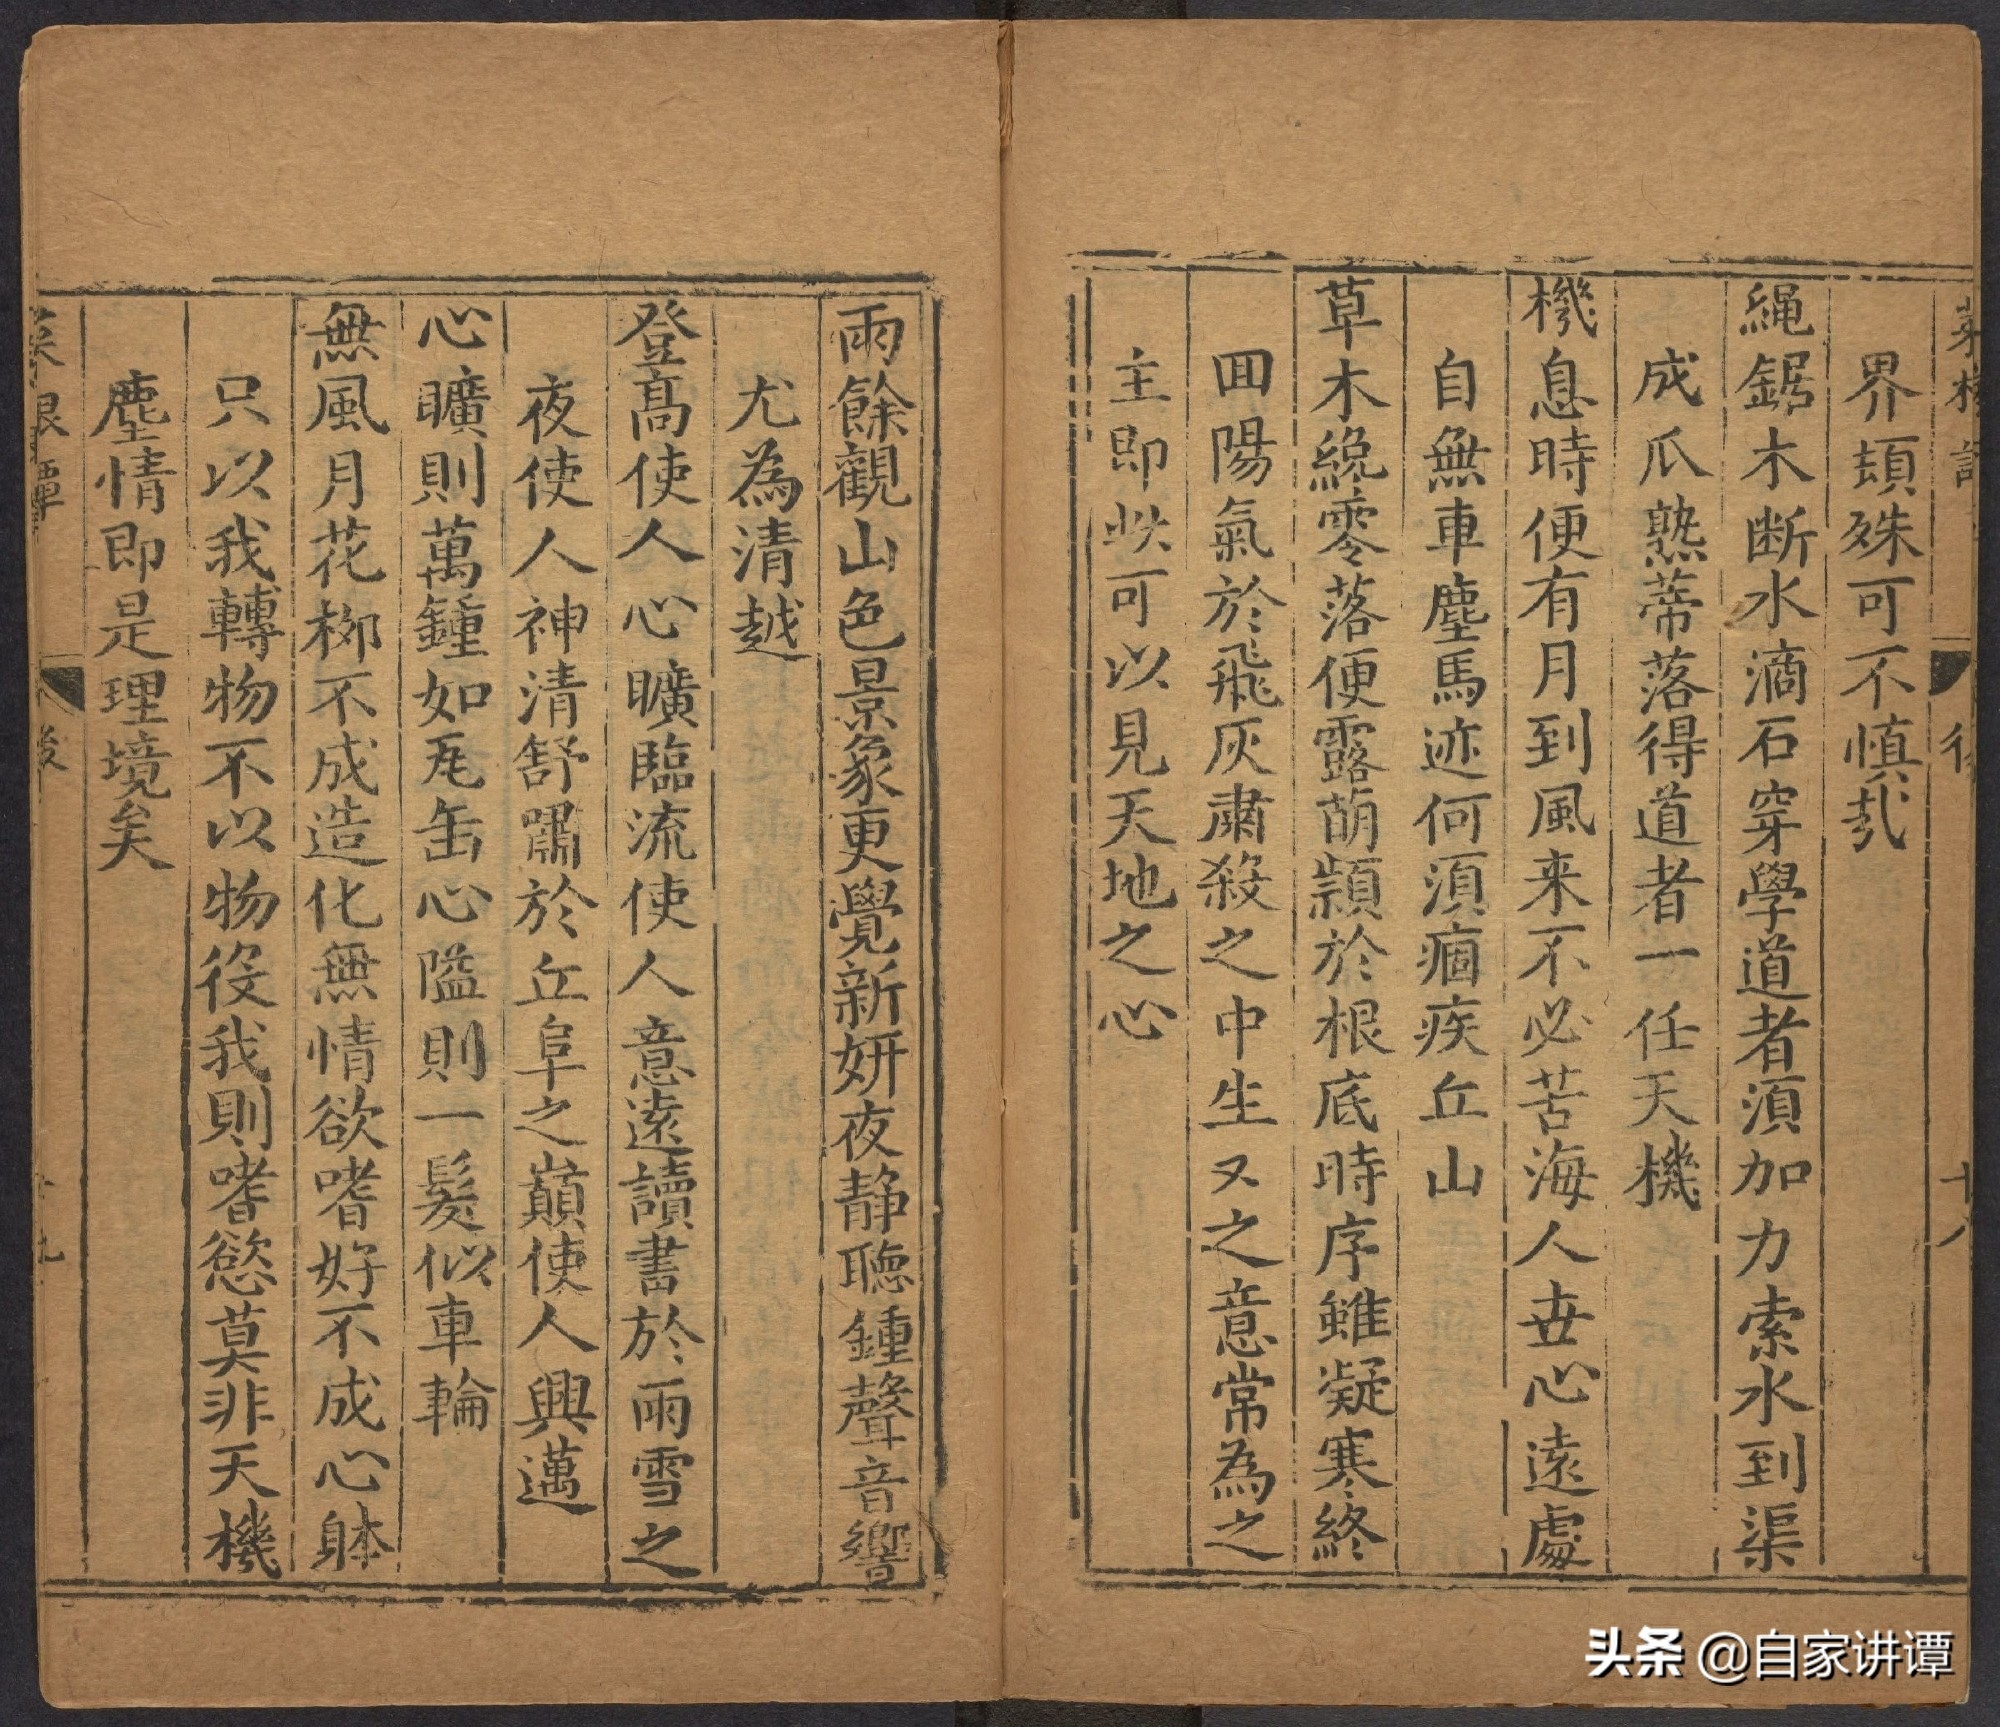 界頓殊可不慎哉
繩鋸木断水滴石穿學道者須加力索水到渠
成瓜熟蒂落得道者一任天機
機息時便有月到風来不必苦海人世心遠處
自無車塵馬迹何須痼疾丘山
草木纔零落便露萌穎於根底時序雖凝寒終
回陽氣於飛灰肅殺之中生又之意常為之
主即此可以見天地之心
雨餘觀山色景象更覺新妍夜静聽鍾聲音響
尤為清越
登髙使人心曠臨流使人意遠讀書於雨雪之
夜使人神清舒嘯於丘阜之巔使人興邁
心曠則萬鍾如瓦缶心隘則一髮似車輪
無風月花栁不成造化無情欲嗜好不成心躰
只以我轉物不以物役我則嗜慾莫非天機
塵情即是理境矣
菜根譚
後
十八
頭条 @自家讲谭